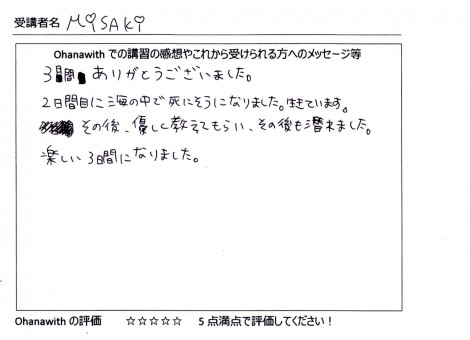 受講者名 MISAKI
Ohanawith での講習の感想やこれから受けられる方へのメッセージ等
3日間 ありがとうございました。
2日間目に海の中で死にそうになりました。生きています。
その後、優しく教えてもらい、その後も潜れました。
楽しい3日間になりました。
Ohanawith の評価 ☆☆☆☆☆ 5点満点で評価してください！